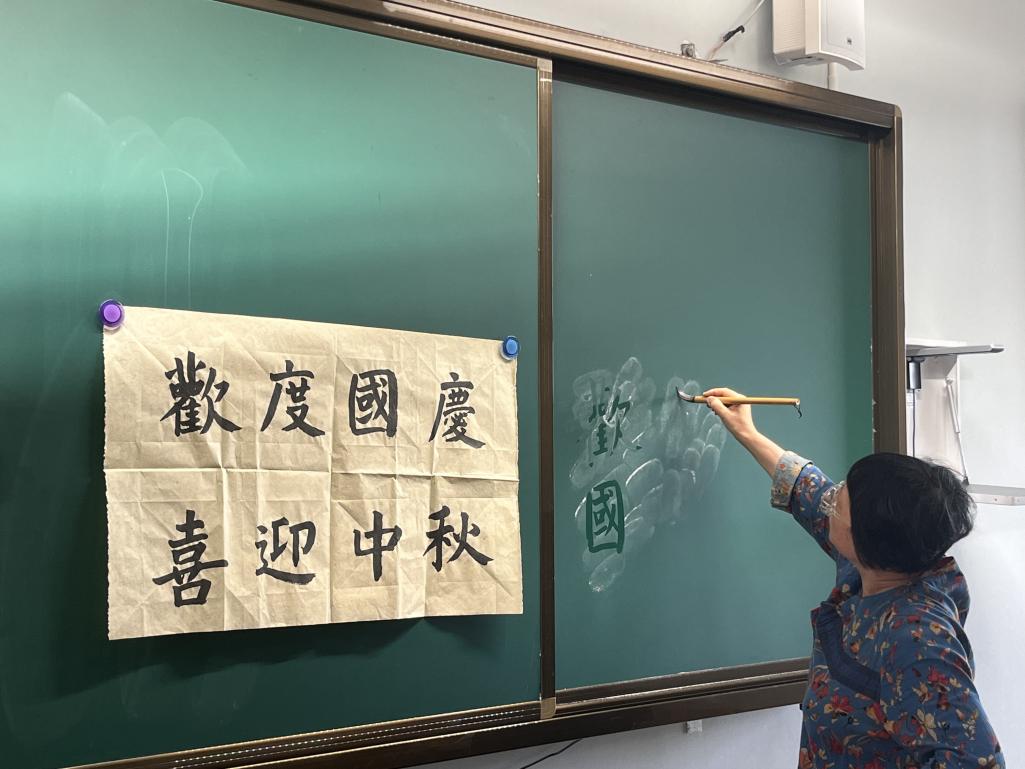 歡度國慶
喜迎中秋
歡
國